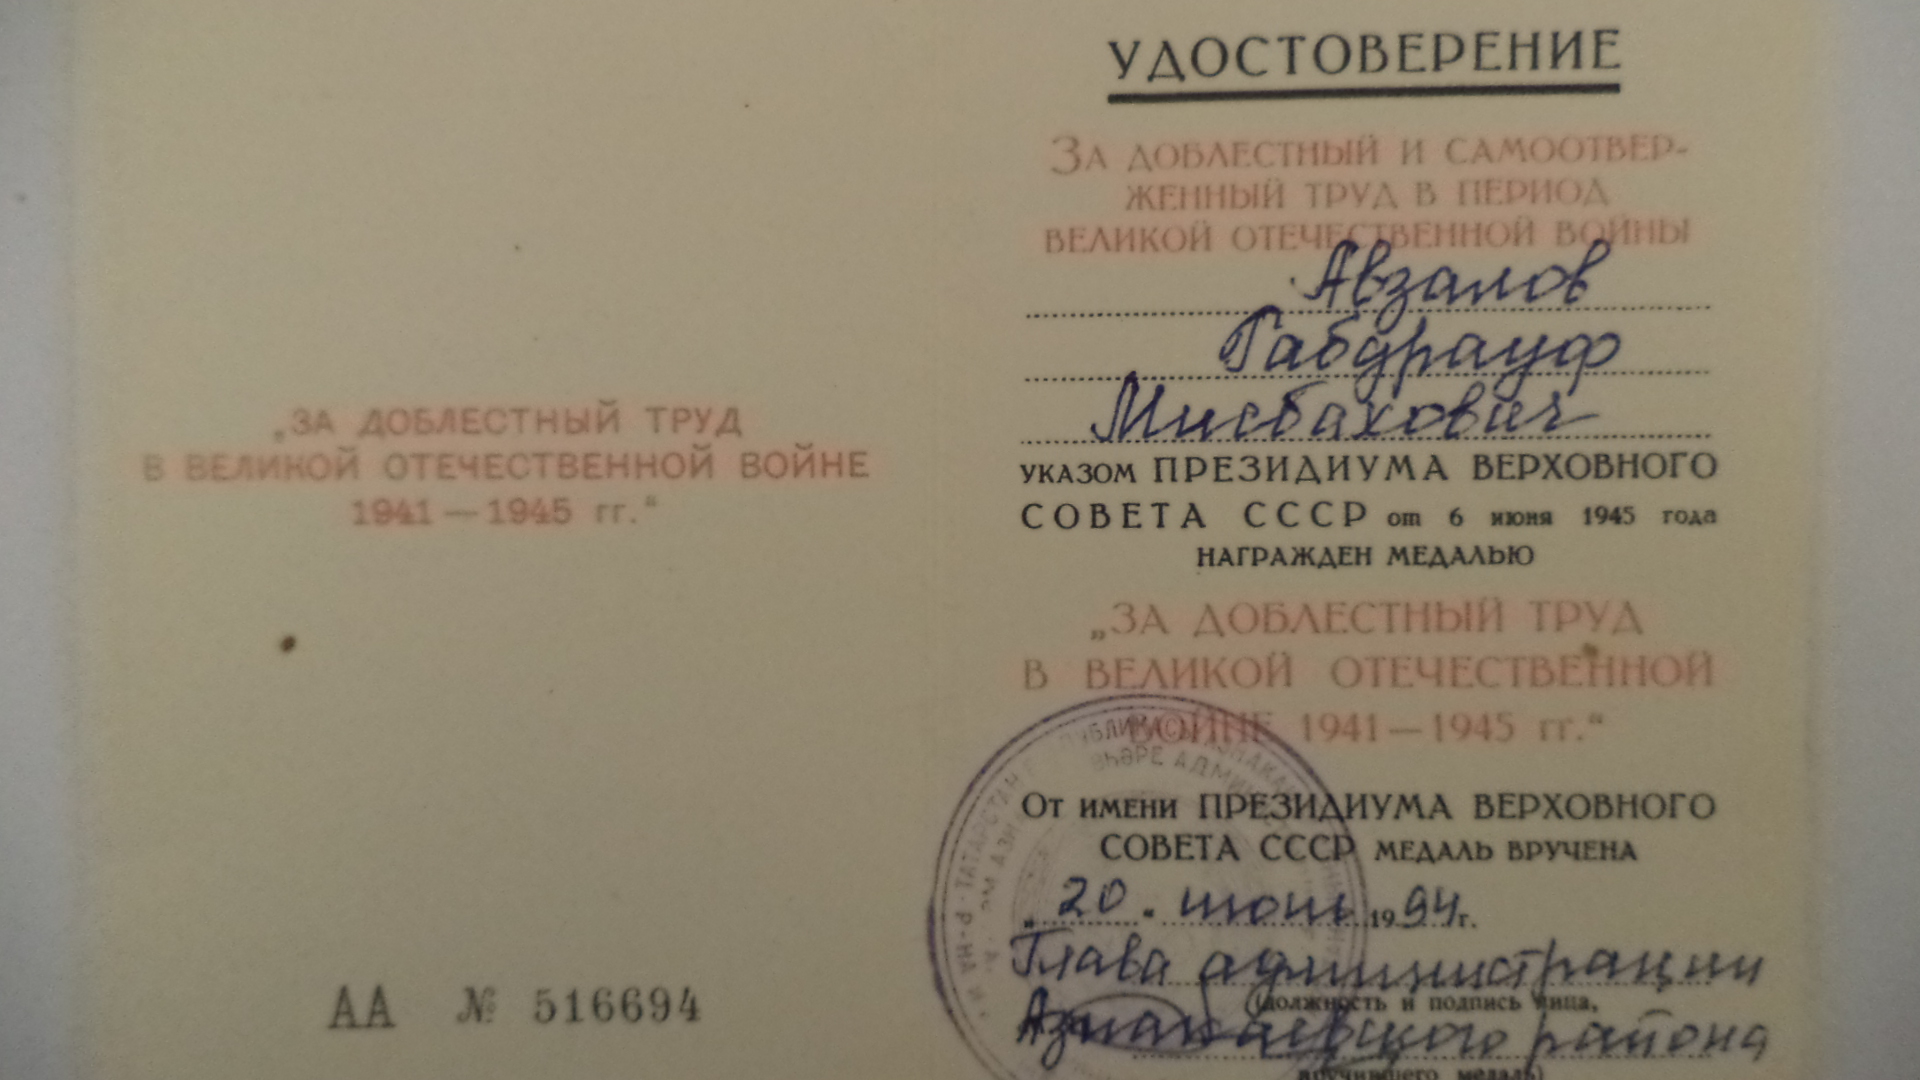 „ЗА ДОБЛЕСТНЫЙ ТРУД
В ВЕЛИКОЙ ОТЕЧЕСТВЕННОЙ ВОЙНЕ
1941—1945 гг.“
АА № 516694
УДОСТОВЕРЕНИЕ
ЗА ДОБЛЕСТНЫЙ И САМООТВЕР-
ЖЕННЫЙ ТРУД В ПЕРИОД
ВЕЛИКОЙ ОТЕЧЕСТВЕННОЙ ВОЙНЫ
Авзалов
Габдрауф
Мисбахович
УКАЗОМ ПРЕЗИДИУМА ВЕРХОВНОГО
СОВЕТА СССР от 6 июня 1945 года
НАГРАЖДЕН МЕДАЛЬЮ
„ЗА ДОБЛЕСТНЫЙ ТРУД
В ВЕЛИКОЙ ОТЕЧЕСТВЕННОЙ
ВОЙНЕ 1941—1945 гг.“
ОТ ИМЕНИ ПРЕЗИДИУМА ВЕРХОВНОГО
СОВЕТА СССР МЕДАЛЬ ВРУЧЕНА
„20“ 1994г.
Глава администрации
(должность и подпись лица,
Азнакаевского района
вручившего медаль)
ТАТАРСТАН